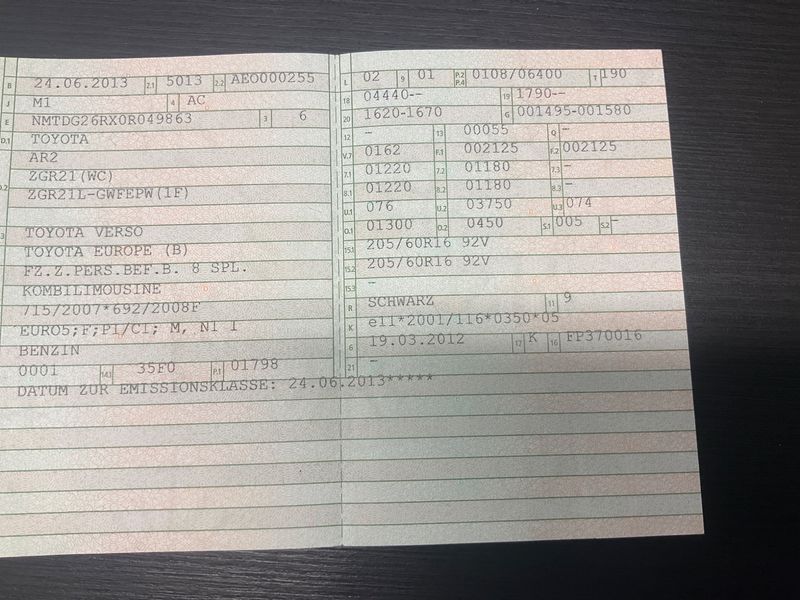 B 24.06.2013 2.1 5013 2.2 AEO000255
J M1 4 AC
E NMTDG26RX0R049863 3 6
D.1 TOYOTA
AR2
ZGR21(WC)
D.2 ZGR21L-GWFEPW(1F)
3 TOYOTA VERSO
TOYOTA EUROPE (B)
FZ.Z.PERS.BEF.B. 8 SPL.
KOMBILIMOUSINE
715/2007*692/2008F
EURO5;F;PI/CI; M, N1 I
BENZIN
0001 14.1 35F0 P.1 01798
DATUM ZUR EMISSIONSKLASSE: 24.06.2013*****
L 02 9 01 P.2 P.4 0108/06400 T 190
18 04440-- 19 1790--
20 1620-1670 G 001495-001580
12 - 13 00055 Q -
V.7 0162 F.1 002125 F.2 002125
7.1 01220 7.2 01180 7.3 -
8.1 01220 8.2 01180 8.3 -
U.1 076 U.2 03750 U.3 074
O.1 01300 O.2 0450 S.1 005 S.2 -
15.1 205/60R16 92V
15.2 205/60R16 92V
15.3 -
R SCHWARZ 11 9
K e11*2001/116*0350*05
6 19.03.2012 17 K 16 FP370016
21 -